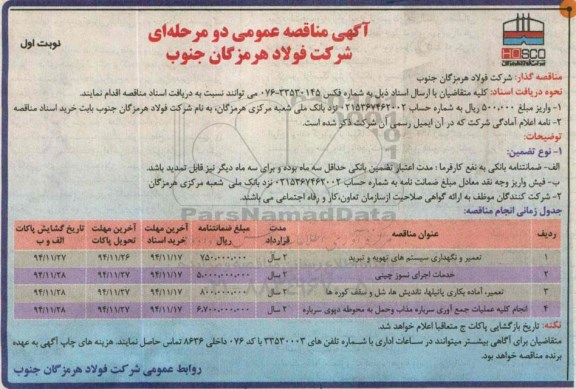 آگهی مناقصه عمومی دو مرحله‌ای
شرکت فولاد هرمزگان جنوب
نوبت اول
HOSCO
مناقصه گذار: شرکت فولاد هرمزگان جنوب
نحوه دریافت اسناد: کلیه متقاضیان با ارسال اسناد ذیل به شماره فکس ۳۳۵۳۰۱۴۵-۰۷۶ می توانند نسبت به دریافت اسناد مناقصه اقدام نمایند.
۱- واریز مبلغ ۵۰۰،۰۰۰ ریال به شماره حساب ۰۲۱۵۳۶۷۴۶۲۰۰۲ نزد بانک ملی شعبه مرکزی هرمزگان، به نام شرکت فولاد هرمزگان جنوب بابت خرید اسناد مناقصه
۲- نامه اعلام آمادگی شرکت که در آن ایمیل رسمی آن شرکت ذکر شده است.
توضیحات:
۱- نوع تضمین:
الف- ضمانتنامه بانکی به نفع کارفرما : مدت اعتبار تضمین بانکی حداقل سه ماه بوده و برای سه ماه دیگر نیز قابل تمدید باشد.
ب- فیش واریز وجه نقد معادل مبلغ ضمانت نامه به شماره حساب ۰۲۱۵۳۶۷۴۶۲۰۰۲ نزد بانک ملی شعبه مرکزی هرمزگان
۲- شرکت کنندگان موظف به ارائه گواهی صلاحیت ازسازمان تعاون،کار و رفاه اجتماعی می باشند.
جدول زمانی انجام مناقصه:
ParsNamadData
ردیف عنوان مناقصه مدت قرارداد مبلغ ضمانتنامه ریال آخرین مهلت خرید اسناد آخرین مهلت تحویل پاکات تاریخ گشایش پاکات الف و ب
۱ تعمیر و نگهداری سیستم های تهویه و تبرید ۲ سال ۷۵۰،۰۰۰،۰۰۰ ۹۴/۱۱/۱۷ ۹۴/۱۱/۲۶ ۹۴/۱۱/۲۷
۲ خدمات اجرای نسوز چینی ۲ سال ۵،۰۰۰،۰۰۰،۰۰۰ ۹۴/۱۱/۱۷ ۹۴/۱۱/۲۷ ۹۴/۱۱/۲۸
۳ تعمیر، آماده بکاری پاتیلها، تاندیش ها، شل و سقف کوره ها ۲ سال ۸۰۰،۰۰۰،۰۰۰ ۹۴/۱۱/۱۷ ۹۴/۱۱/۲۷ ۹۴/۱۱/۲۸
۴ انجام کلیه عملیات جمع آوری سرباره مذاب وحمل به محوطه دپوی سرباره ۲ سال ۶،۷۰۰،۰۰۰،۰۰۰ ۹۴/۱۱/۱۷ ۹۴/۱۱/۲۷ ۹۴/۱۱/۲۸
نکته: تاریخ بازگشایی پاکات ج متعاقبا اعلام خواهد شد.
متقاضیان برای آگاهی بیشتر میتوانند در ساعات اداری با شماره تلفن های ۳۳۵۳۰۰۰۳ با کد ۰۷۶ داخلی ۸۶۳۶ تماس حاصل نمایند. هزینه های چاپ آگهی به عهده
برنده مناقصه خواهد بود.
روابط عمومی شرکت فولاد هرمزگان جنوب